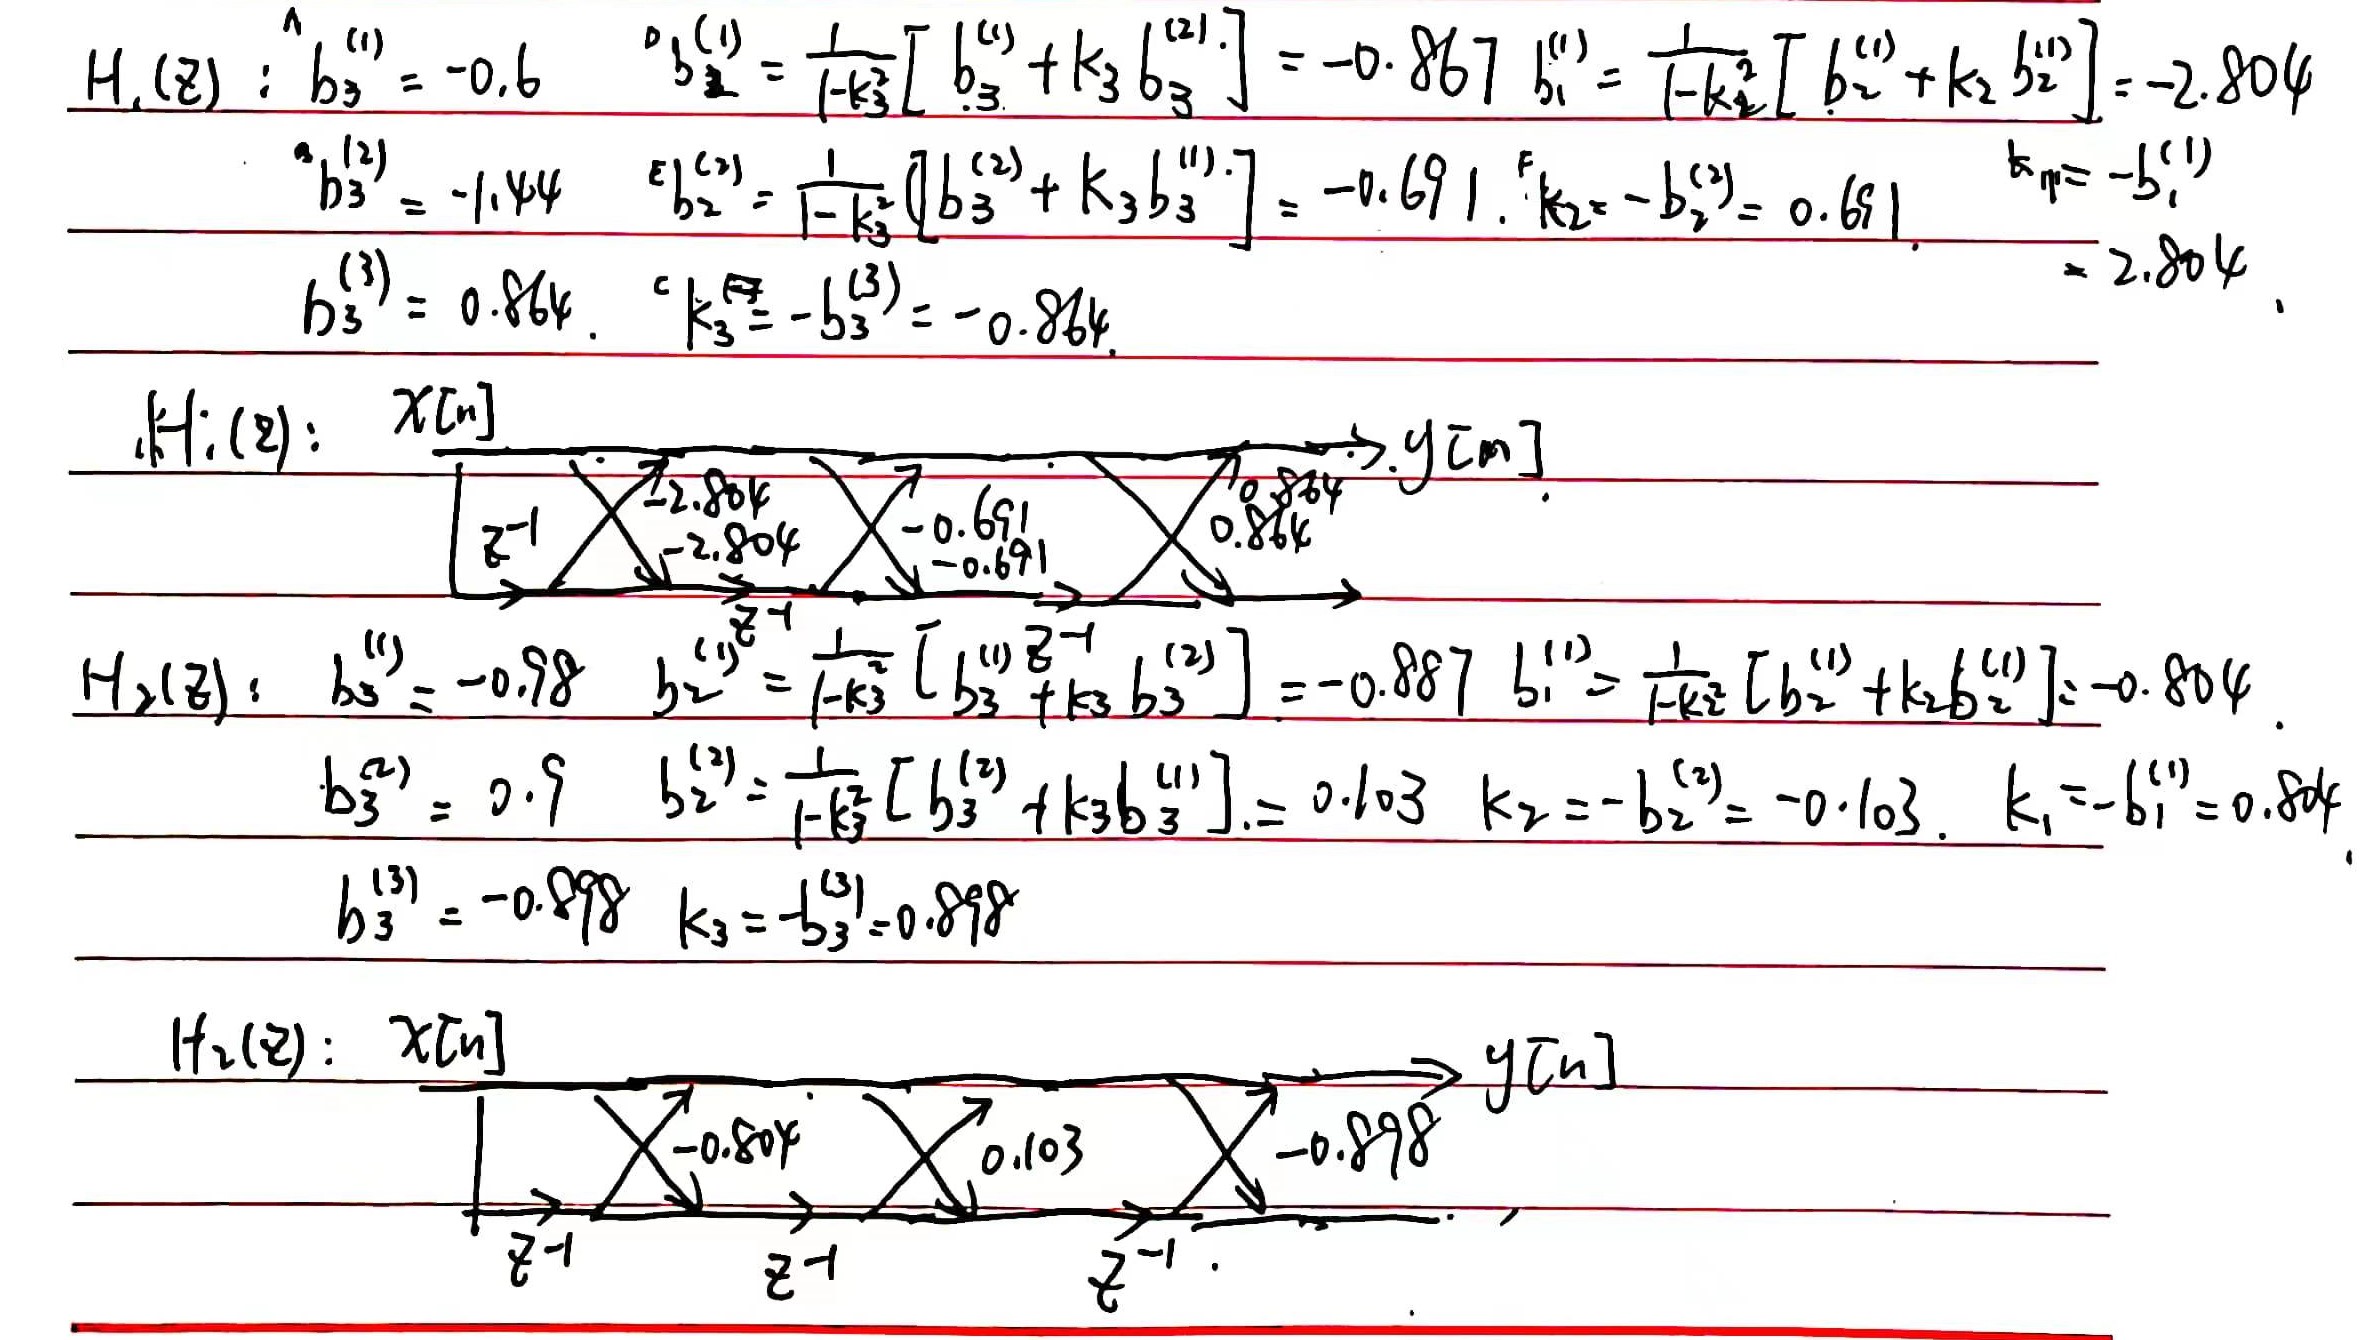 H₁(z) : A b₃⁽¹⁾ = -0.6 D b₂⁽¹⁾ = 1/(1-k₃²) [ b₃⁽¹⁾ + k₃ b₃⁽²⁾ ] = -0.867 b₁⁽¹⁾ = 1/(1-k₂²) [ b₂⁽¹⁾ + k₂ b₂⁽¹⁾ ] = -2.804
b₃⁽²⁾ = -1.44 E b₂⁽²⁾ = 1/(1-k₃²) [ b₃⁽²⁾ + k₃ b₃⁽¹⁾ ] = -0.691. F k₂ = -b₂⁽²⁾ = 0.691 = -b₁⁽¹⁾
= 2.804.
b₃⁽³⁾ = 0.864. C k₃ = -b₃⁽³⁾ = -0.864.
H₁(z): x[n]
y[n]
-2.804 -0.691 0.864
z⁻¹ -2.804 -0.691 0.864
z⁻¹ z⁻¹
H₂(z): b₃⁽¹⁾ = -0.98 b₂⁽¹⁾ = 1/(1-k₃²) [ b₃⁽¹⁾ + k₃ b₃⁽²⁾ ] = -0.887 b₁⁽¹⁾ = 1/(1-k₂²) [ b₂⁽¹⁾ + k₂ b₂⁽¹⁾ ] = -0.804.
b₃⁽²⁾ = 0.9 b₂⁽²⁾ = 1/(1-k₃²) [ b₃⁽²⁾ + k₃ b₃⁽¹⁾ ]. = 0.103 k₂ = -b₂⁽²⁾ = -0.103. k₁ = -b₁⁽¹⁾ = 0.804.
b₃⁽³⁾ = -0.898 k₃ = -b₃⁽³⁾ = 0.898
H₂(z): x[n] y[n]
-0.804 0.103 -0.898
z⁻¹ z⁻¹ z⁻¹.